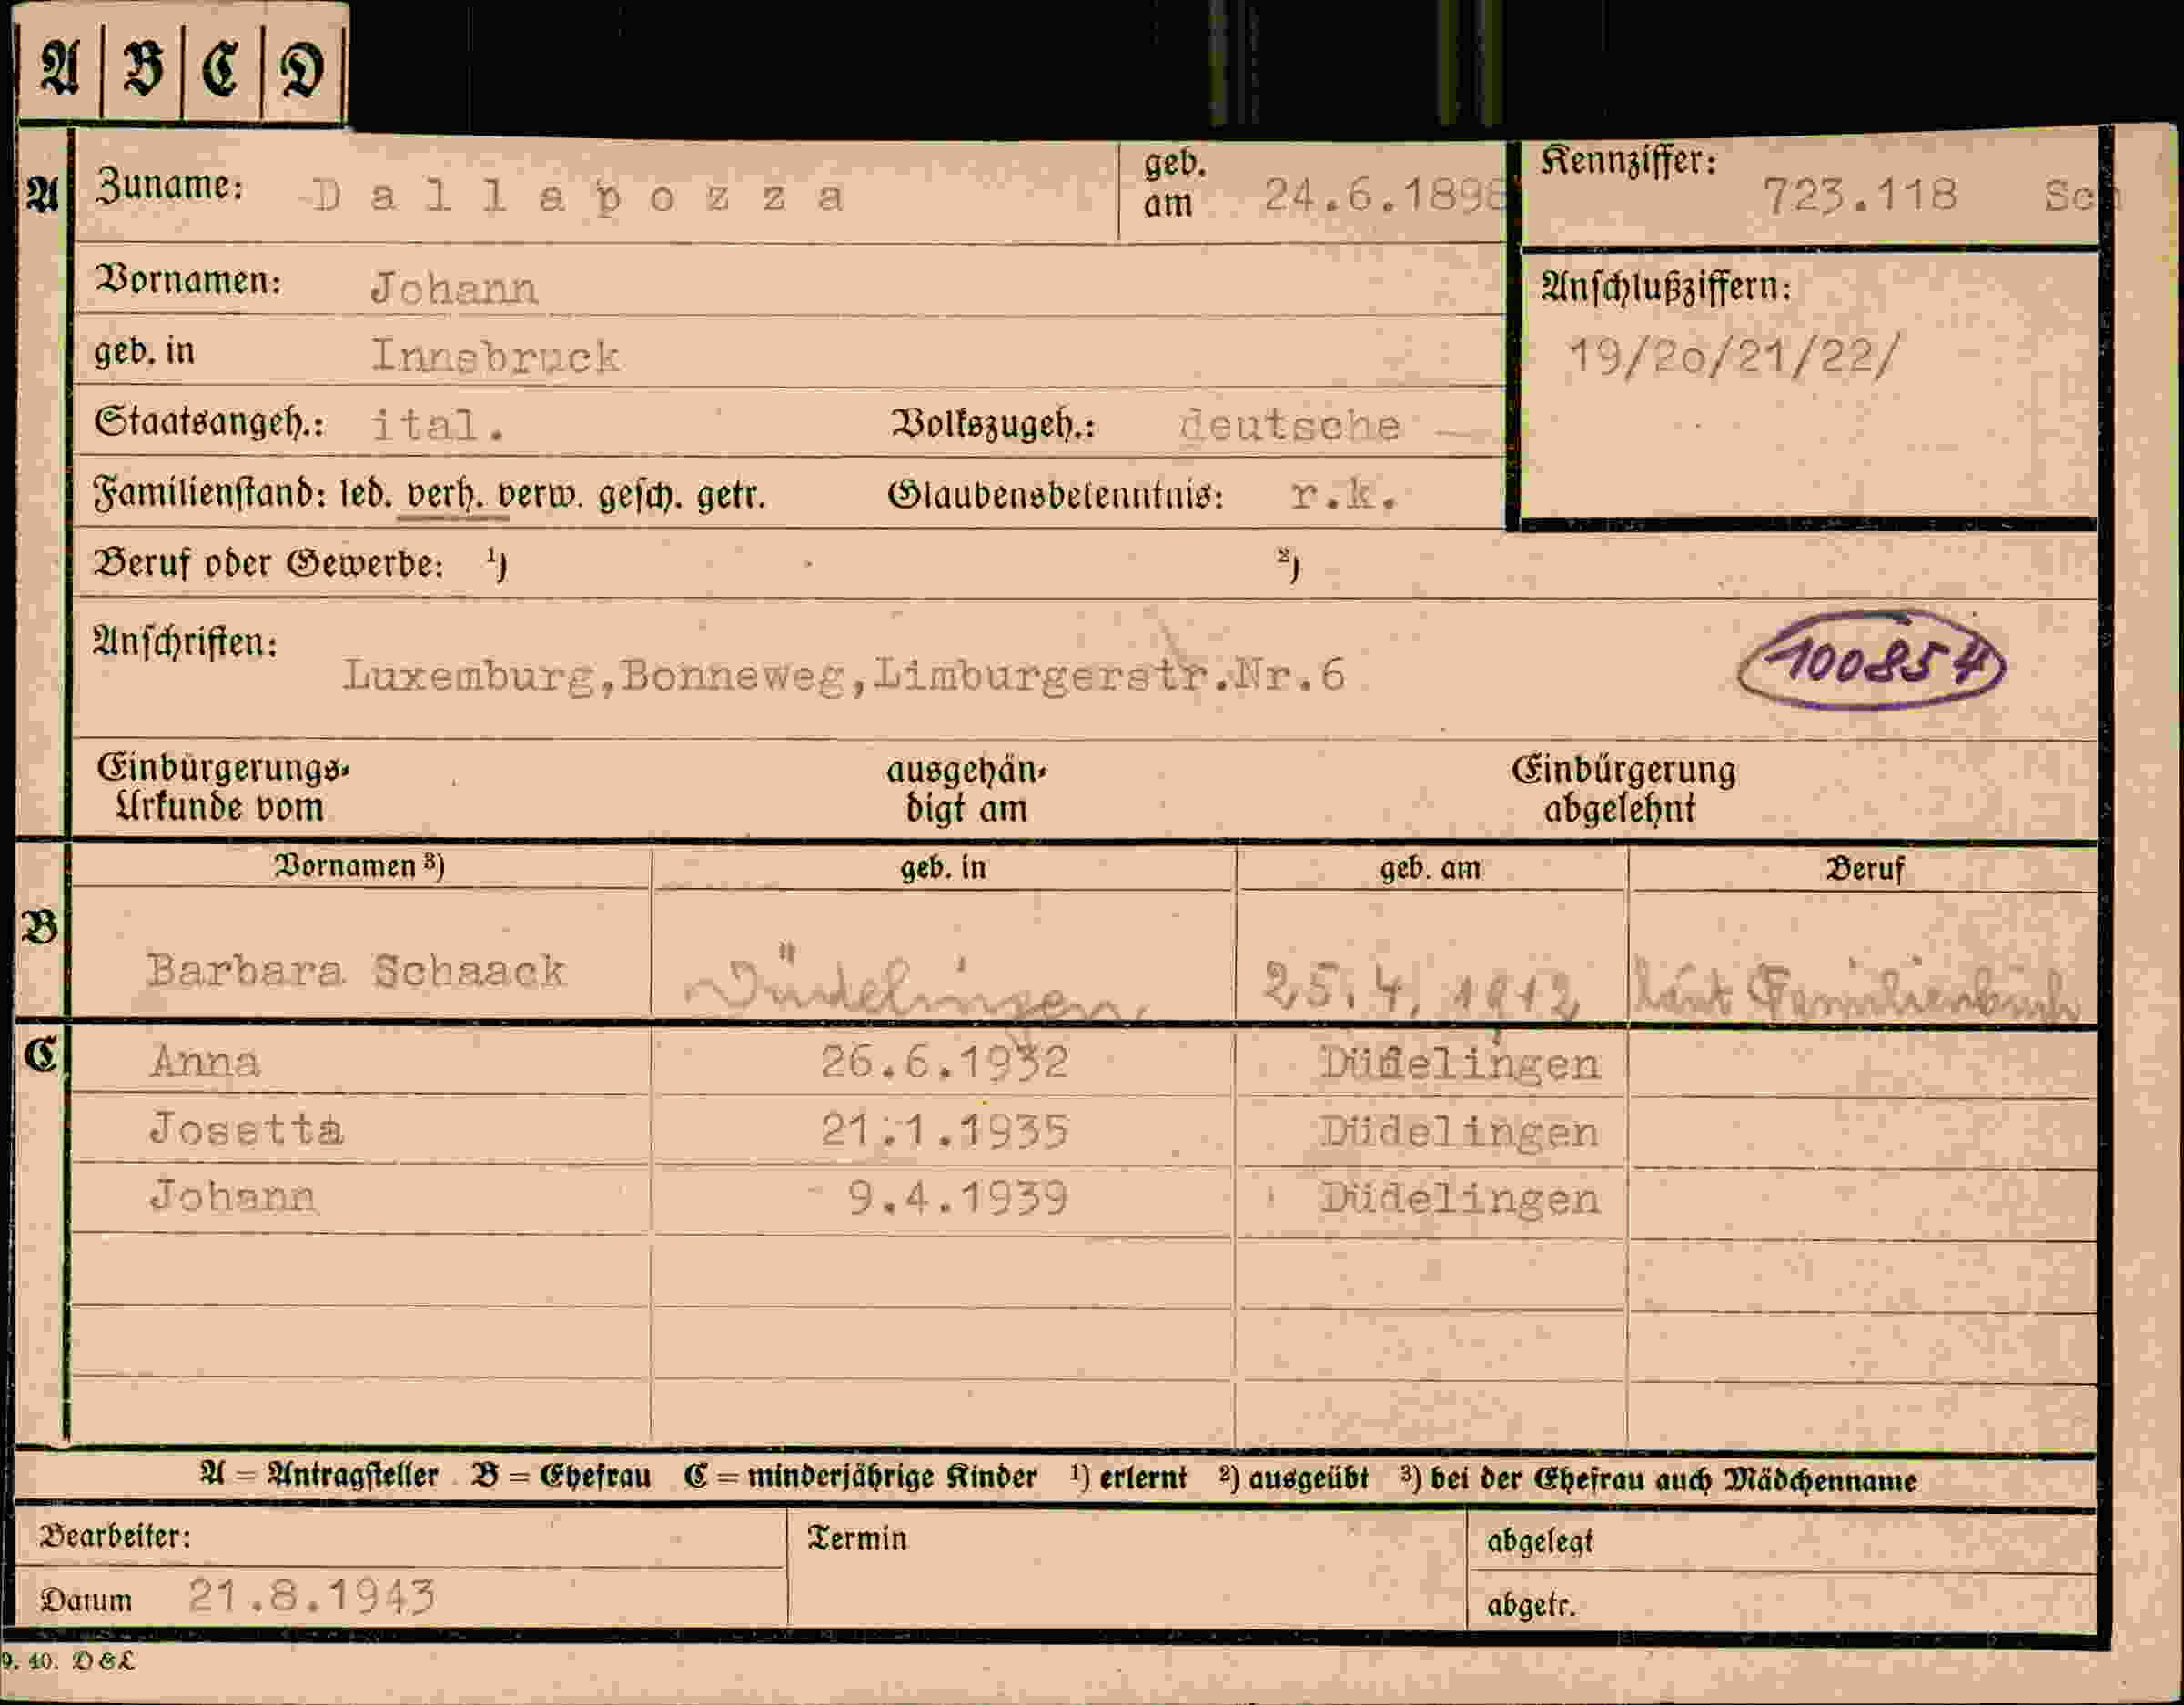 A | B | C | D
A Zuname: Dallapozza geb. am 24.6.1898 Kennziffer: 723.118 Sch
Vornamen: Johann Anschlußziffern:
geb. in Innsbruck 19/20/21/22/
Staatsangeh.: ital. Volkszugeh.: deutsche
Familienstand: led. verh. verw. gesch. getr. Glaubensbekenntnis: r.k.
Beruf oder Gewerbe: 1) 2)
Anschriften: Luxemburg,Bonneweg,Limburgerstr.Nr.6 100854
Einbürgerungs- ausgehän- Einbürgerung
Urkunde vom digt am abgelehnt
Vornamen 3) geb. in geb. am Beruf
B Barbara Schaack Düdelingen 25.4.1912 laut Familienbuch
C Anna 26.6.1932 Düdelingen
Josetta 21.1.1935 Düdelingen
Johann 9.4.1939 Düdelingen
A = Antragsteller B = Ehefrau C = minderjährige Kinder 1) erlernt 2) ausgeübt 3) bei der Ehefrau auch Mädchenname
Bearbeiter: Termin abgelegt
Datum 21.8.1943 abgetr.
9. 40. D & L